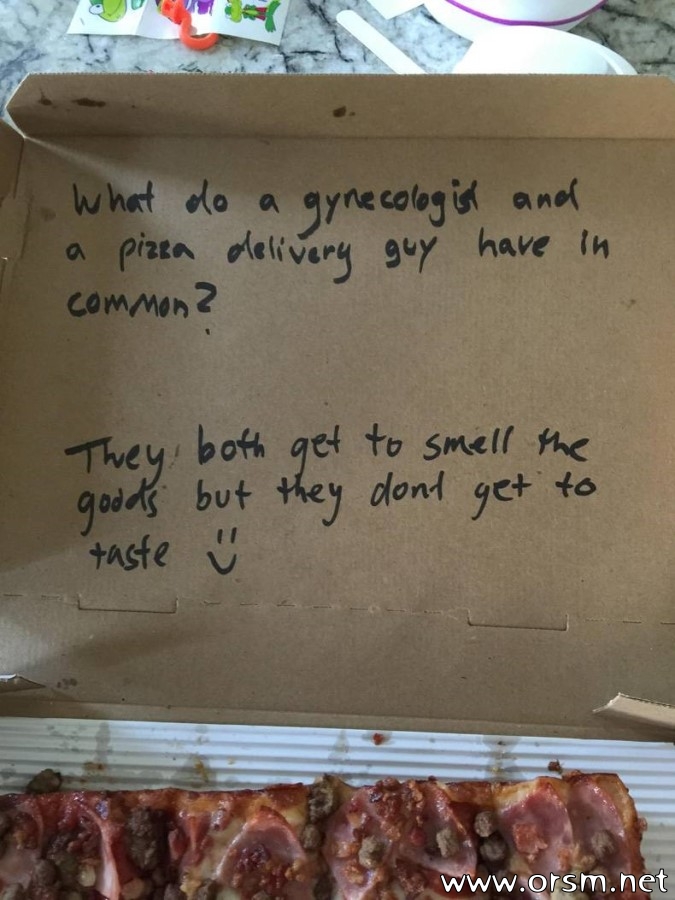 What do a gynecologist and
a pizza delivery guy have in
common?
They both get to smell the
goods but they dont get to
taste
www.orsm.net